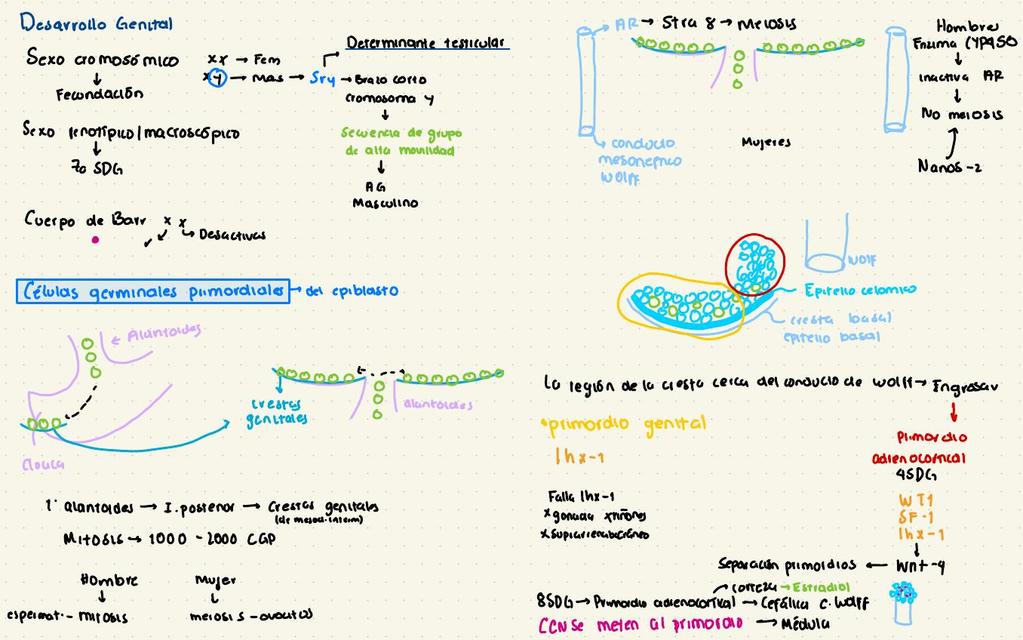 Desarrollo Genital
Sexo cromosómico
Fecundación
xx → Fem
xy → Mas → Sry → Brazo corto
cromosoma y
Determinante testicular
Secuencia de grupo
de alta movilidad
AG
Masculino
Sexo fenotípico/macroscópico
7a SDG
Cuerpo de Barr x x
Desactivas
Células germinales primordiales → del epiblasto
Alantoides
Cloaca
crestas
genitales
alantoides
1° alantoides → I. posterior → Crestas genitales
(de mesod. interm)
Mitosis → 1000 - 2000 CGP
Hombre
espermat. - mitosis
Mujer
meiosis - ovocitos
AR → Stra 8 → Meiosis
conducto
mesonefrico
Wolff
Mujeres
Hombres
Enzima CYP450
inactiva AR
No meiosis
Nanos-2
Wolf
Epitelio celomico
cresta basal
epitelio basal
La región de la cresta cerca del conducto de wolff → Engrosar
primordio genital
lhx-1
Primordio
adrenocortical
4SDG
WT1
SF-1
lhx-1
Wnt-4
Falla lhx-1
x gonada x riñones
Separación primordios
corteza → Estradiol
8SDG → Primordio adrenocortical → Cefálica c. Wolff
CCN se meten al primordio → Médula